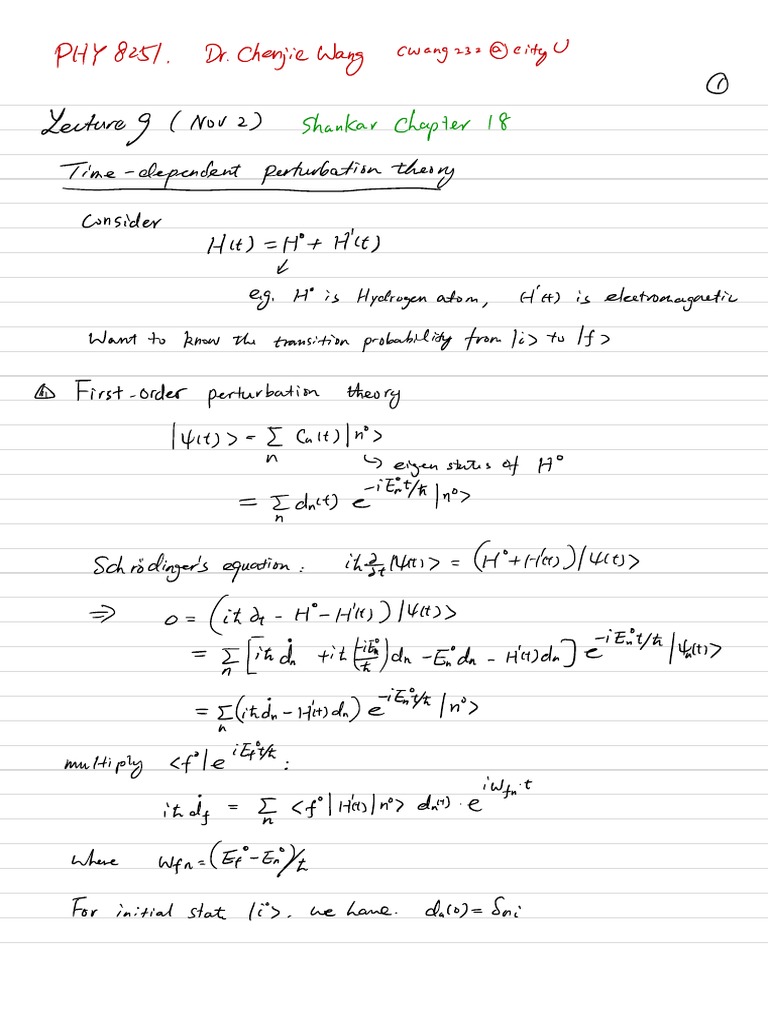 PHY 8251. Dr. Chenjie Wang cwang232@cityU
①
Lecture 9 (Nov 2) Shankar Chapter 18
Time-dependent perturbation theory
Consider
H(t) = H⁰ + H'(t)
↙
e.g. H⁰ is Hydrogen atom, H'(t) is electromagnetic
Want to know the transition probability from |i> to |f>
First-order perturbation theory
|ψ(t)> = Σ_n Cₙ(t)|n⁰>
↳ eigen states of H⁰
= Σ_n dₙ(t) e^{-iEₙ⁰t/ħ} |n⁰>
Schrödinger's equation: iħ ∂/∂t |ψ(t)> = (H⁰ + H'(t)) |ψ(t)>
⇒ 0 = (iħ∂ₜ - H⁰ - H'(t)) |ψ(t)>
= Σ_n [iħ ḋₙ + iħ(-iEₙ⁰/ħ)dₙ - Eₙ⁰dₙ - H'(t)dₙ] e^{-iEₙ⁰t/ħ} |ψₙ(t)>
= Σ_n (iħḋₙ - H'(t)dₙ) e^{-iEₙ⁰t/ħ} |n⁰>
multiply <f⁰|e^{iE_f⁰t/ħ} :
iħ ḋ_f = Σ_n <f⁰|H'(t)|n⁰> dₙ(t) · e^{iω_{fn}·t}
where ω_{fn} = (E_f⁰ - Eₙ⁰)/ħ
For initial stat |i⁰>, we have. dₙ(0) = δₙᵢ